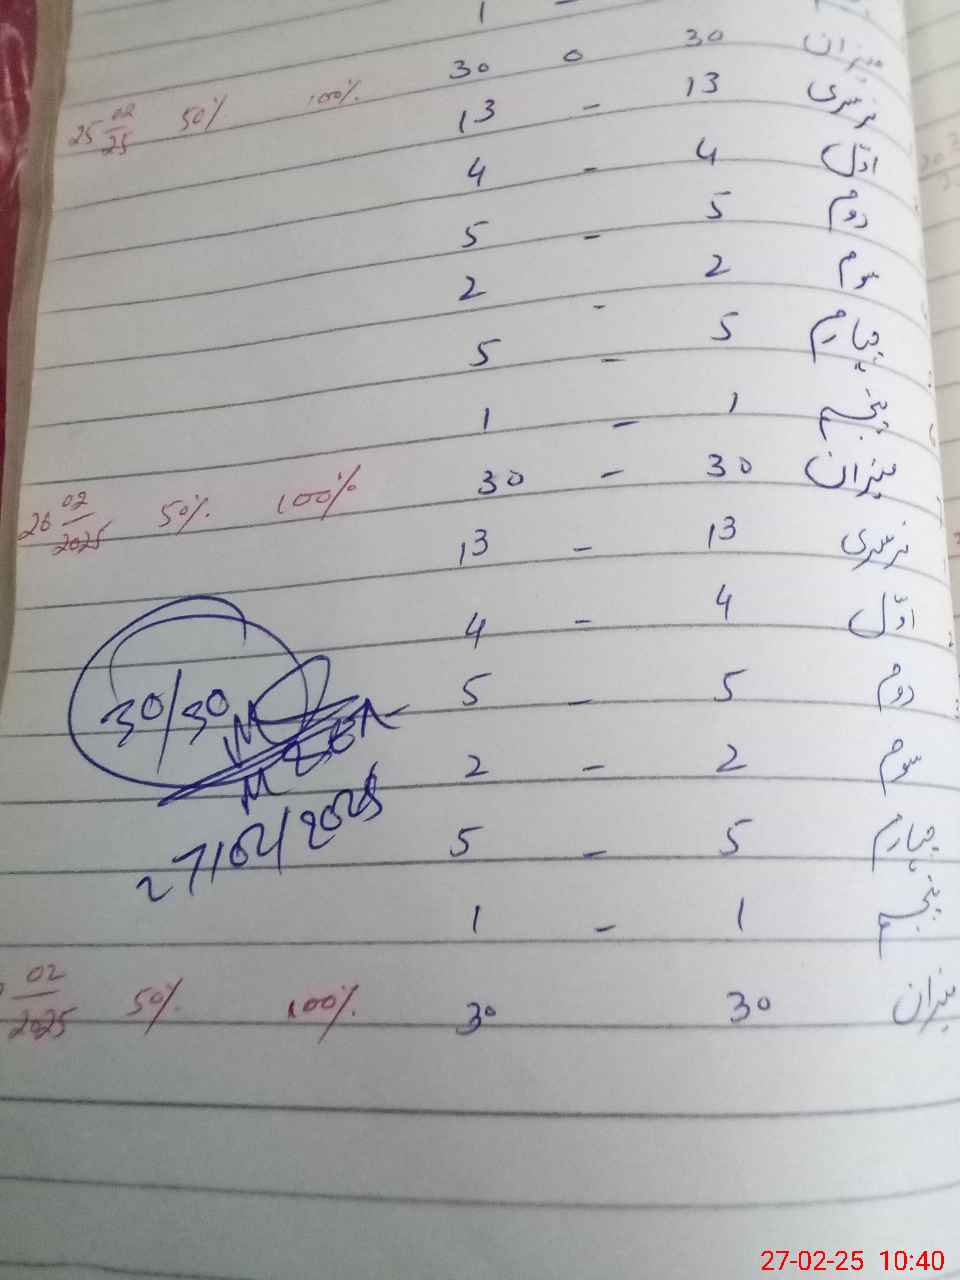 1 -
میزان 30 0 30 100% 50% 25 02/25
نرسری 13 - 13
اوّل 4 - 4
دوم 5 - 5
سوم 2 - 2
چہارم 5 - 5
پنجم 1 - 1
میزان 30 - 30 100% 50% 26 02/2025
نرسری 13 - 13
اوّل 4 - 4
دوم 5 - 5
سوم 2 - 2
چہارم 5 - 5
پنجم 1 - 1
میزان 30 30 100% 50% 02/2025
30/30
27/02/2025
27-02-25 10:40